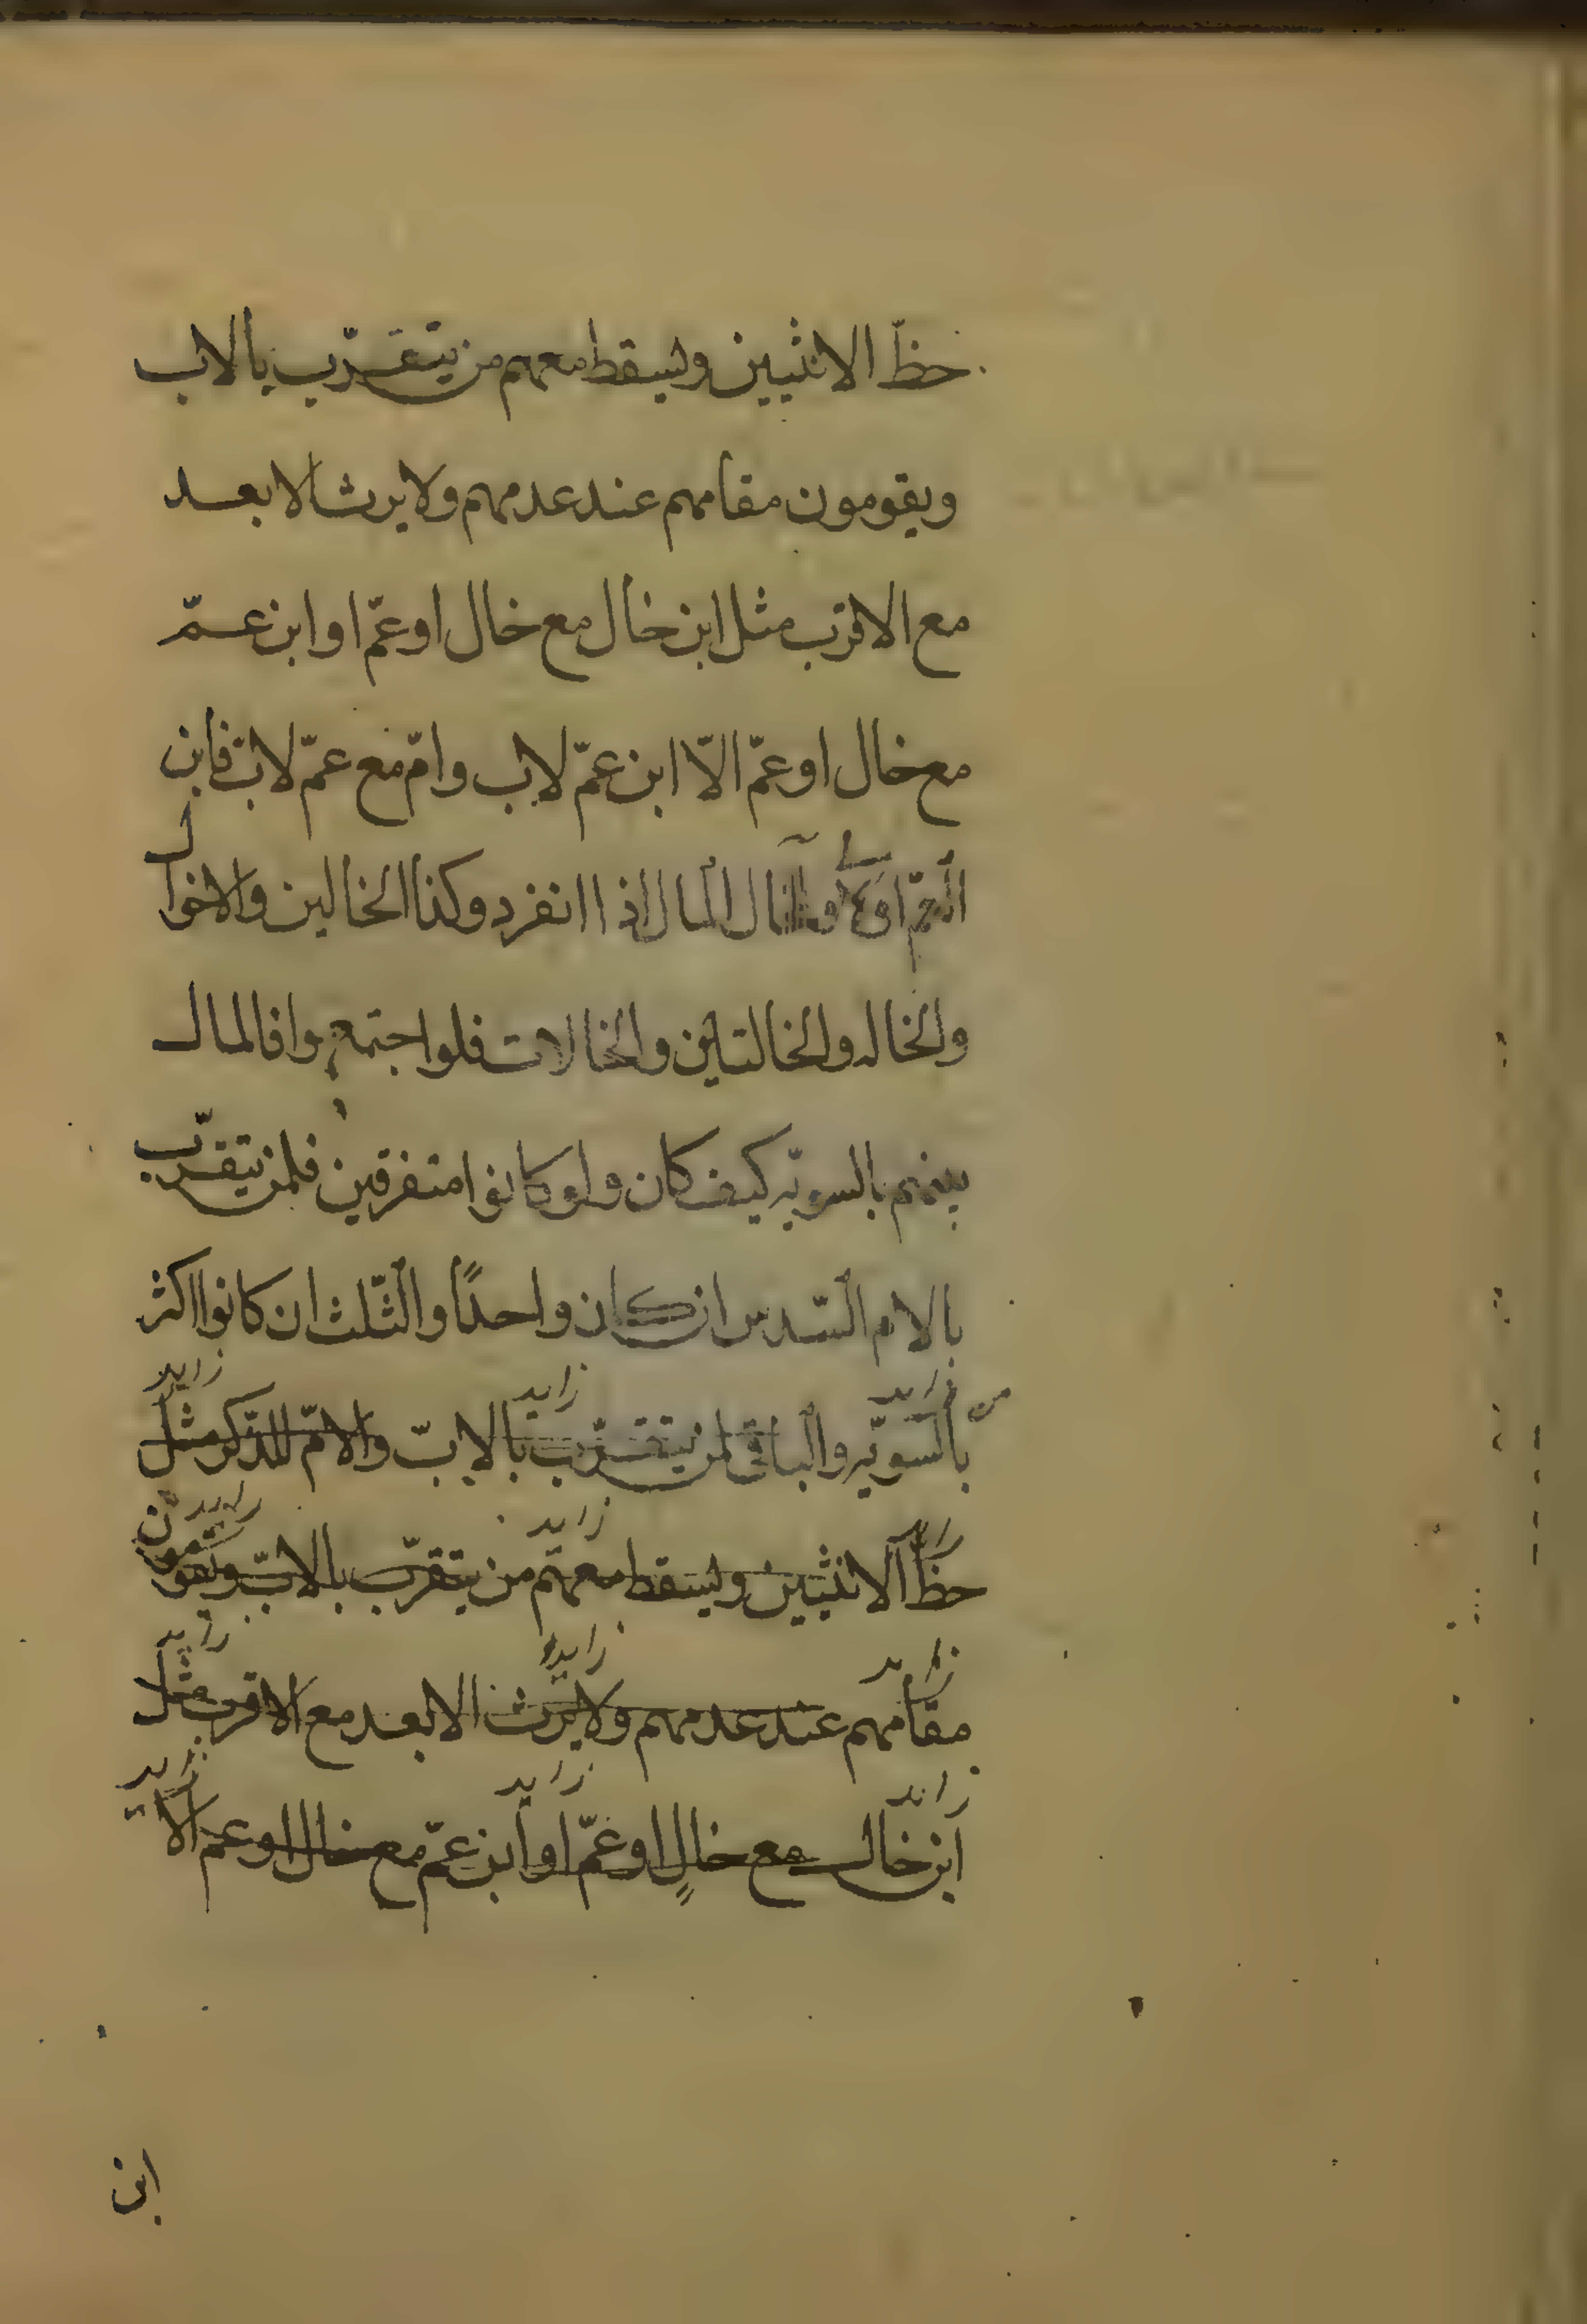 حظّ الانثيين ويسقط معهم من يتقرّب بالاب
ويقومون مقامهم عند عدمهم ولا يرث الابعد
مع الاقرب مثل ابن خال مع خال او عمّ او ابن عمّ
مع خال او عمّ الّا ابن عمّ لاب وامّ مع عمّ لاب فابن
العمّ اولى وللخال المال اذا انفرد وكذا الخالين والاخوال
والخاله والخالتين والخالات فلو اجتمعوا فالمال
بينهم بالسويّه كيف كان ولو كانوا متفرقين فلمن يتقرّب
بالام السّدس ان كان واحدًا والثّلث ان كانوا اكثر
من زايد زايد زايد
بالسّويّه والباقى لمن يتقرّب بالابّ والامّ للذّكر مثل
زايد زايد زايد
حظّ الانثيين ويسقط معهم من يتقرّب بالابّ ويقومون
زايد زايد زايد
مقامهم عند عدمهم ولا يرث الابعد مع الاقرب مثل
زايد زايد زايد
ابن خال مع خالٍ او عمّ او ابن عمّ مع خال او عم الا
ابن